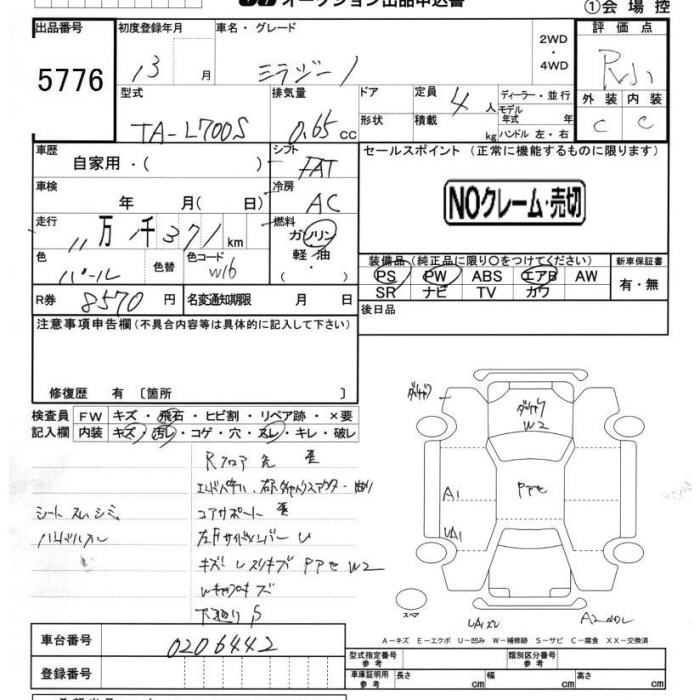 オークション出品申込書
①会場控
出品番号
5776
初度登録年月
13 月
車名・グレード
ミラジーノ
2WD
・
4WD
評価点
R小
外装 内装
C C
型式
TA-L700S
排気量
0.65 cc
ドア
形状
定員 4 人
積載 kg
ディーラー・並行
モデル
年式 年
ハンドル 左・右
車歴
自家用・( )
シフト
FAT
車検
年 月( 日)
冷房
AC
走行
11万 1千 371 km
燃料
ガソリン
軽油
・
( )
色
パール
色替
色コード
W16
R券 8570 円
名変通知期限 月 日
セールスポイント (正常に機能するものに限ります)
NOクレーム・売切
装備品(純正品に限り○をつけてください)
PS PW ABS エアB AW
SR ナビ TV カワ
新車保証書
有・無
後日品
注意事項申告欄(不具合内容等は具体的に記入して下さい)
修復歴 有 〔箇所 〕
検査員 FW キズ・飛石・ヒビ割・リペア跡・×要
記入欄 内装 キズ・汚レ・コゲ・穴・スレ・キレ・破レ
Rフロア 先 歪
シート スレ シミ
コアサポート 歪
ハンドルスレ
キズ
PPセ W2
下廻り S
W2
PPセ
A1
UA1
スペア
A-キズ E-エクボ U-凹み W-補修跡 S-サビ C-腐食 XX-交換済
車台番号 0206442
登録番号
型式指定番号
参考
類別区分番号
参考
車庫証明用
参考
長さ cm
幅 cm
高さ cm